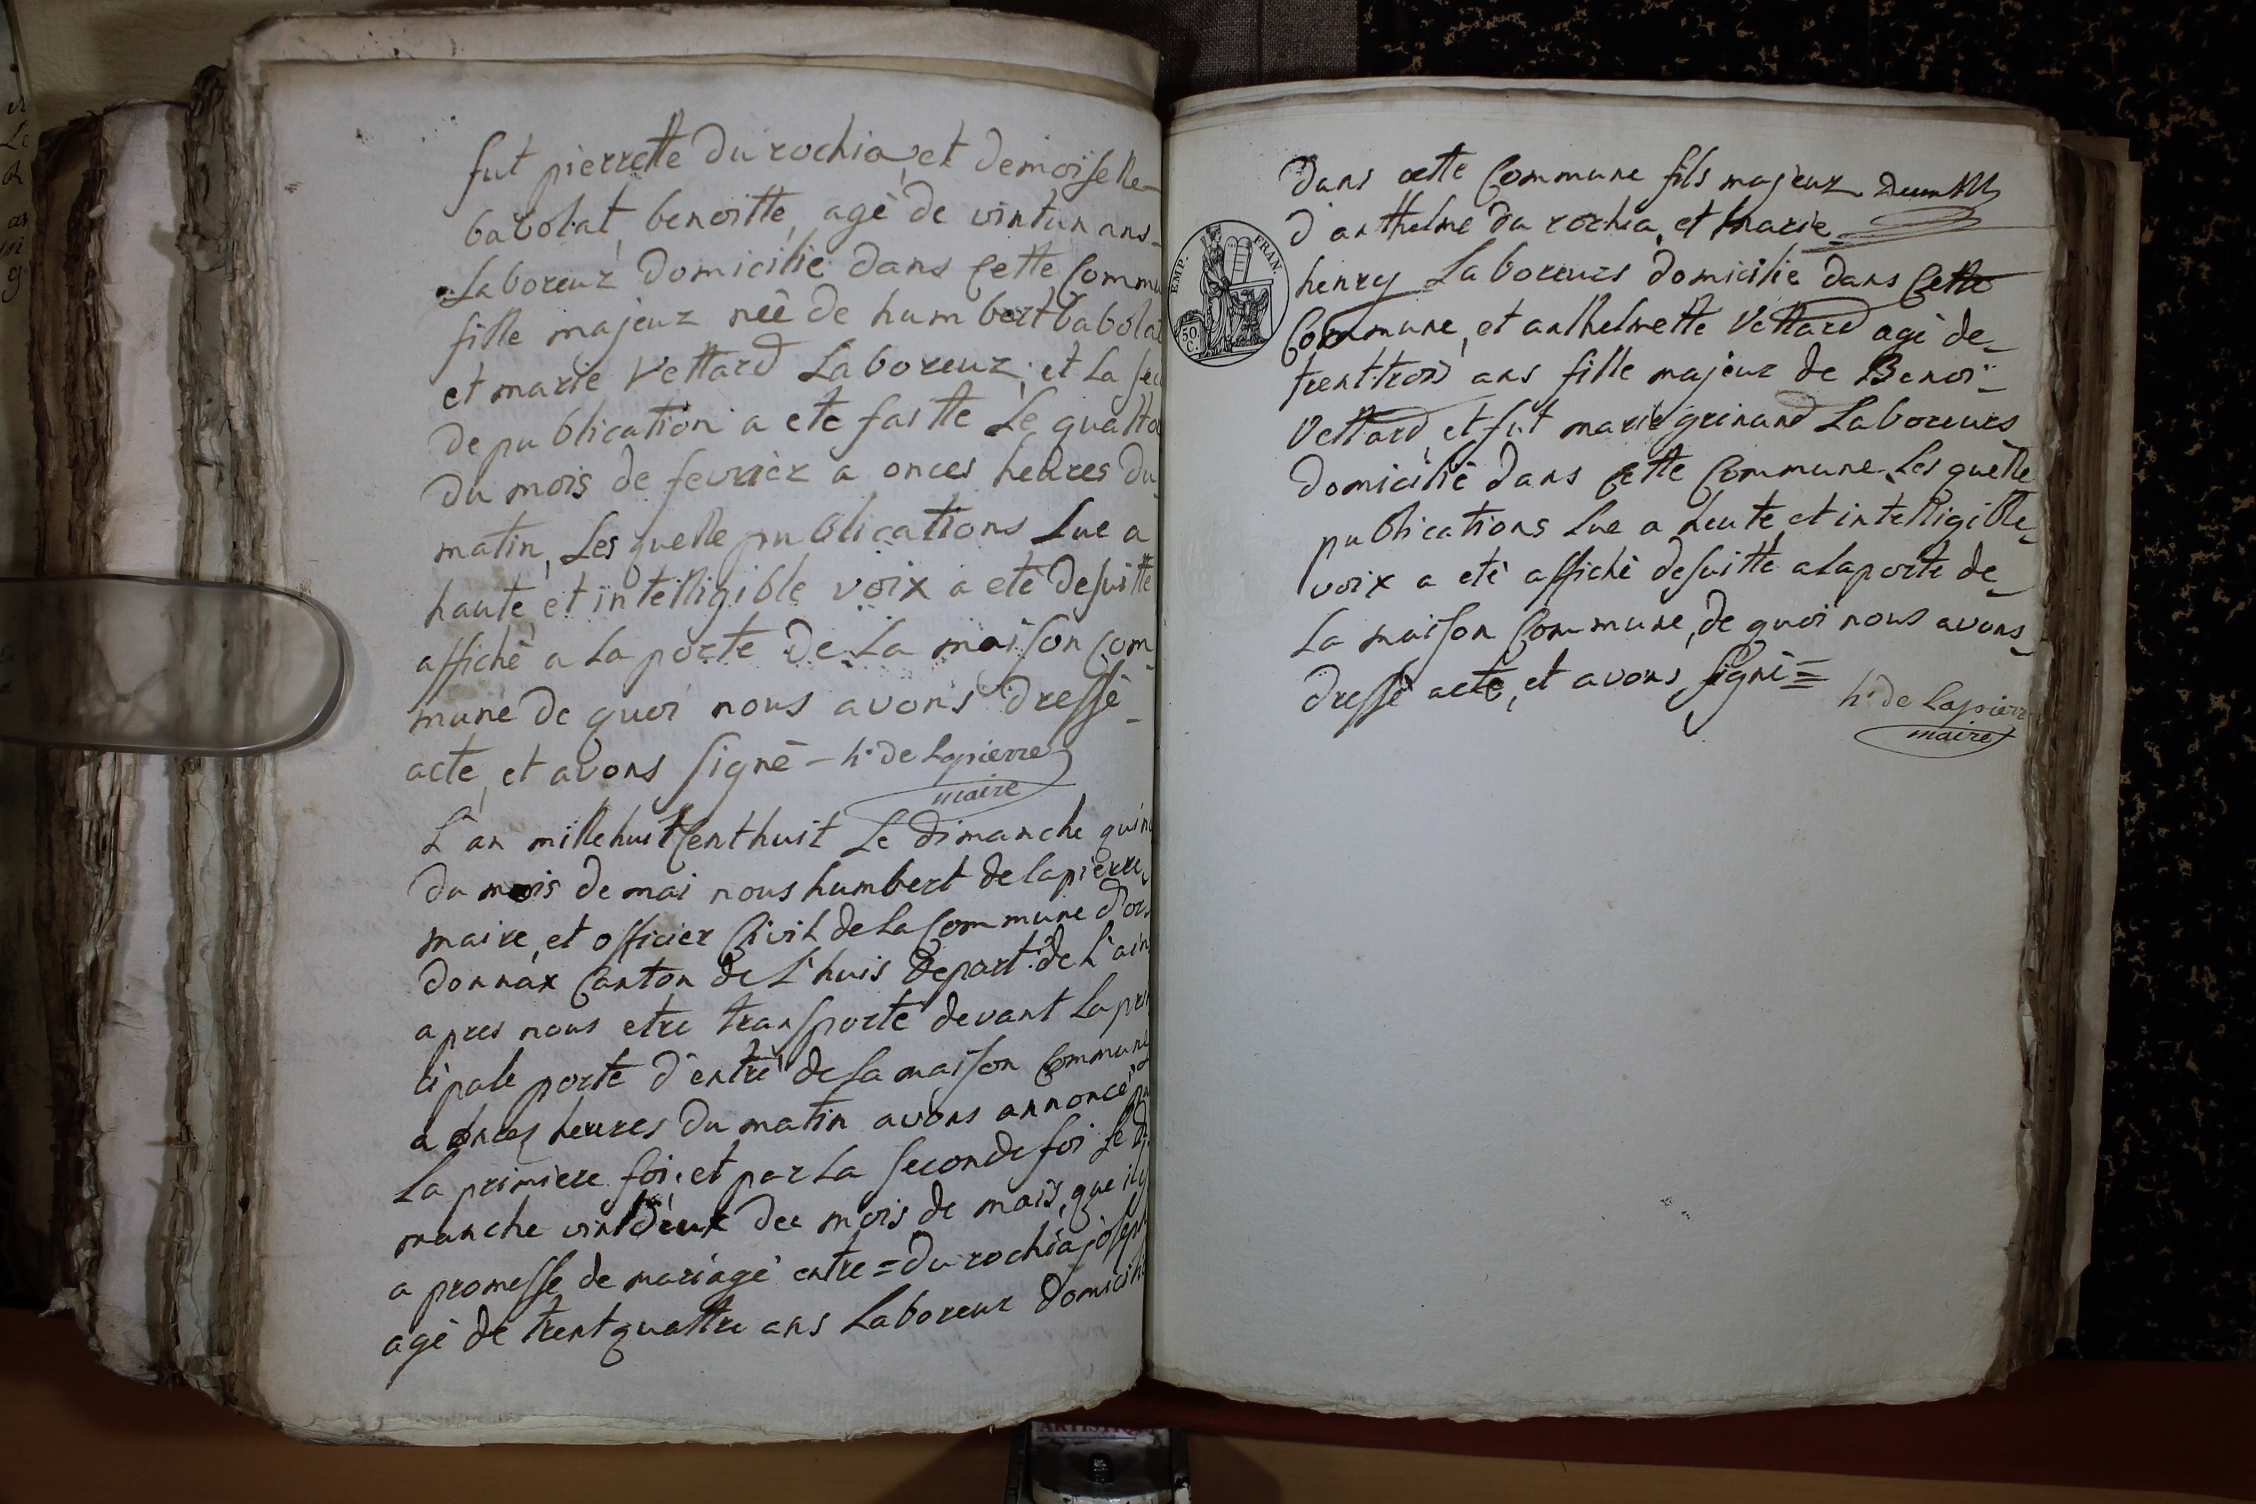 fut pierrette du rochia, et demoiselle
babolat, benoitte, agè de vintun ans
Laboreuz domicilié dans Cette Commu
fille majeuz neè de humbert babolat
et marie Vettard Laboreuz; et La sec
de publication a ete faitte Le quatto
du mois de fevriez a onces heures du
matin, Les quelle publications Lue a
haute et intelligible voix a eté desuitte
affiché a La porte de La maison Com
mune de quoi nous avons dressé
acte, et avons signé - h. de Lapierre
maire
L'an mille huit Cent huit Le dimanche quin
du mois de mai nous humbert de lapierre,
maire, et officier Civil de La Commune d'or
donnax Canton de L'huis depart. de L'ain
apres nous etre transporté devant La prin
cipale porte d'entré de La maison Commune
a onces heures du matin avons annoncé
La primiere foi, et par La seconde foi Le di
manche vintdeux dee mois de mais, que il y
a promesse de mariagé entre = du rochia joseph
agè de trent quattre ans Laboreuz domicilié
dans cette Commune fils majeuz
d'anthelme du rochia, et marie
henry Laboreurs domicilié dans Cette
Commune, et anthelmette Vettard agè de
trent-trois ans fille majeur de Benoi
Vettard, et fut marie grinand Laboreurs
domicilié dans Cette Commune Les quelle
publications Lue a heute et intelligible
voix a eté affiché desuitte a La porte de
La maison Commune, de quoi nous avons
dressé acte, et avons signé =
h. de Lapierre
maire
EMP. FRAN.
50
C.